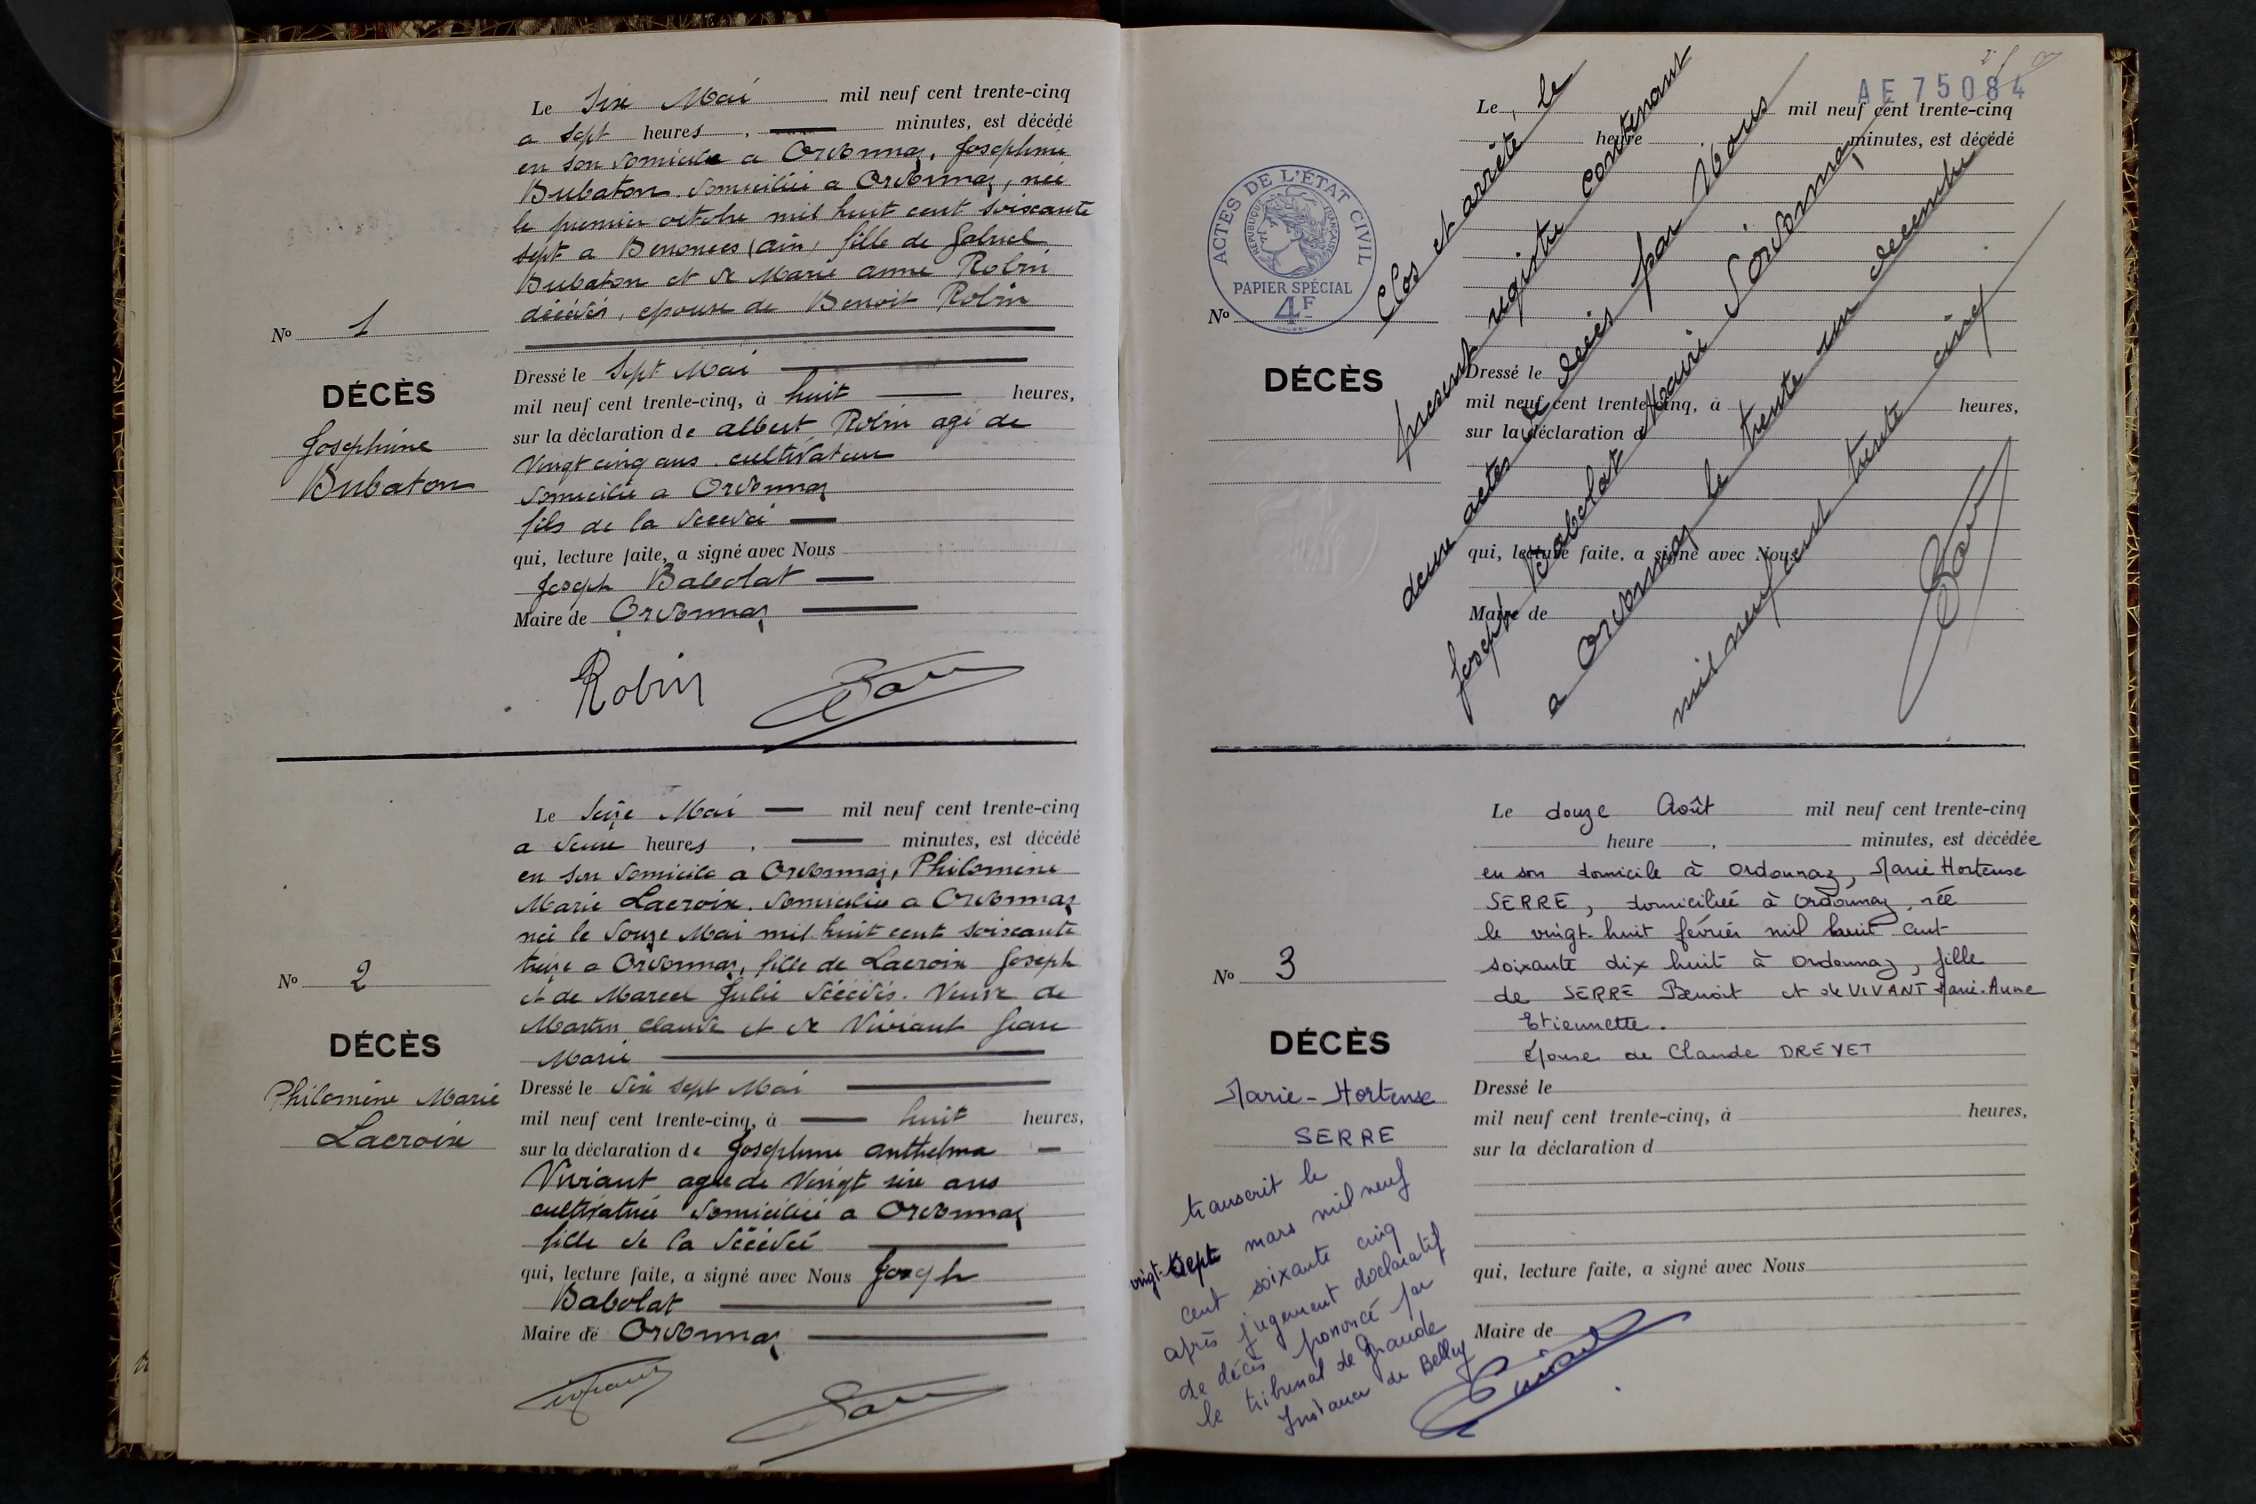 Le Six Mai mil neuf cent trente-cinq
a sept heures, minutes, est décédé
en son domicile a Ordonnaz, Josephine
Bubaton domiciliée a Ordonnaz, née
le premier octobre mil huit cent soixante
sept a Benonces (ain) fille de Gabriel
Bubaton et de Marie anne Robin
décédés, epouse de Benoit Robin
No 1
DÉCÈS
Josephine
Bubaton
Dressé le Sept Mai
mil neuf cent trente-cinq, à huit heures,
sur la déclaration de albert Robin agé de
Vingt cinq ans cultivateur
domicilié a Ordonnaz
fils de la décédée
qui, lecture faite, a signé avec Nous
Joseph Babolat
Maire de Ordonnaz
Robin
Le Seize Mai mil neuf cent trente-cinq
a heures, minutes, est décédé
en son domicile a Ordonnaz, Philomène
Marie Lacroix. domiciliée a Ordonnaz
née le douze Mai mil huit cent soixante
treize a Ordonnaz, fille de Lacroix Joseph
et de Marcel Julie décédés. Veuve de
Martin Claude et de Viviant Jean
Marie
No 2
DÉCÈS
Philomène Marie
Lacroix
Dressé le dix sept Mai
mil neuf cent trente-cinq, à huit heures,
sur la déclaration de Josephine anthelma
Viviant agée de Vingt six ans
cultivatrice domiciliée a Ordonnaz
fille de la décédée
qui, lecture faite, a signé avec Nous Joseph
Babolat
Maire de Ordonnaz
AE 75084
Le mil neuf cent trente-cinq
heure minutes, est décédé
ACTES DE L'ÉTAT CIVIL
RÉPUBLIQUE FRANÇAISE
PAPIER SPÉCIAL
4F
No
DÉCÈS
Dressé le
mil neuf cent trente-cinq, à heures,
sur la déclaration d
qui, lecture faite, a signé avec Nous
Maire de
Clos et arrêté le
présent registre contenant
deux actes de décès par Nous
Joseph Babolat Maire d'Ordonnaz
a Ordonnaz le trente un decembre
mil neuf cent trente cinq
Le douze Août mil neuf cent trente-cinq
heure, minutes, est décédée
en son domicile à Ordonnaz, Marie Hortense
SERRE, domiciliée à Ordonnaz, née
le vingt-huit février mil huit cent
soixante dix huit à Ordonnaz, fille
de SERRE Benoit et de VIVANT Marie-Anne
Etiennette.
Epouse de Claude DREVET
No 3
DÉCÈS
Marie-Hortense
SERRE
transcrit le
vingt-sept mars mil neuf
cent soixante cinq
après jugement déclaratif
de décès prononcé par
le tribunal de Grande
Instance de Belley
Dressé le
mil neuf cent trente-cinq, à heures,
sur la déclaration d
qui, lecture faite, a signé avec Nous
Maire de